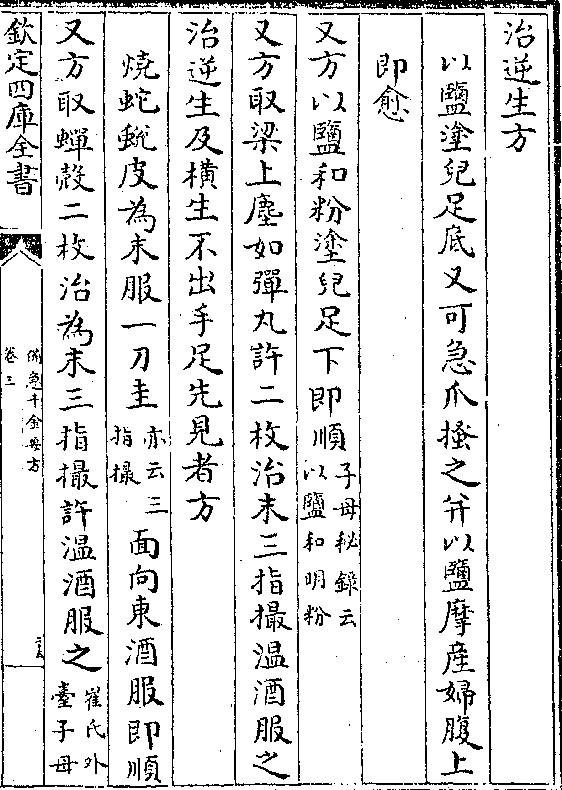 治逆生方
以鹽塗兒足底又可急爪搔之并以鹽摩産婦腹上
即愈
又方以鹽和粉塗兒足下即順子母秘錄云以鹽和明粉
又方取梁上塵如彈丸許二枚治末三指撮温酒服之
治逆生及横生不出手足先見者方
燒蛇蛻皮為末服一刀圭亦云三指撮面向東酒服即順
又方取蟬殻二枚治為末三指撮許温酒服之崔氏外臺子母
欽定四庫全書
備急千金要方
卷三